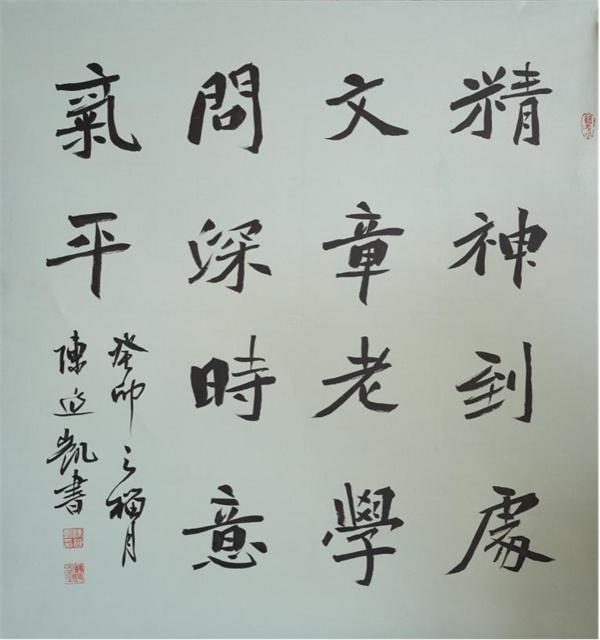 精神到處
文章老學
問深時意
氣平
癸卯之榴月
陳凱書